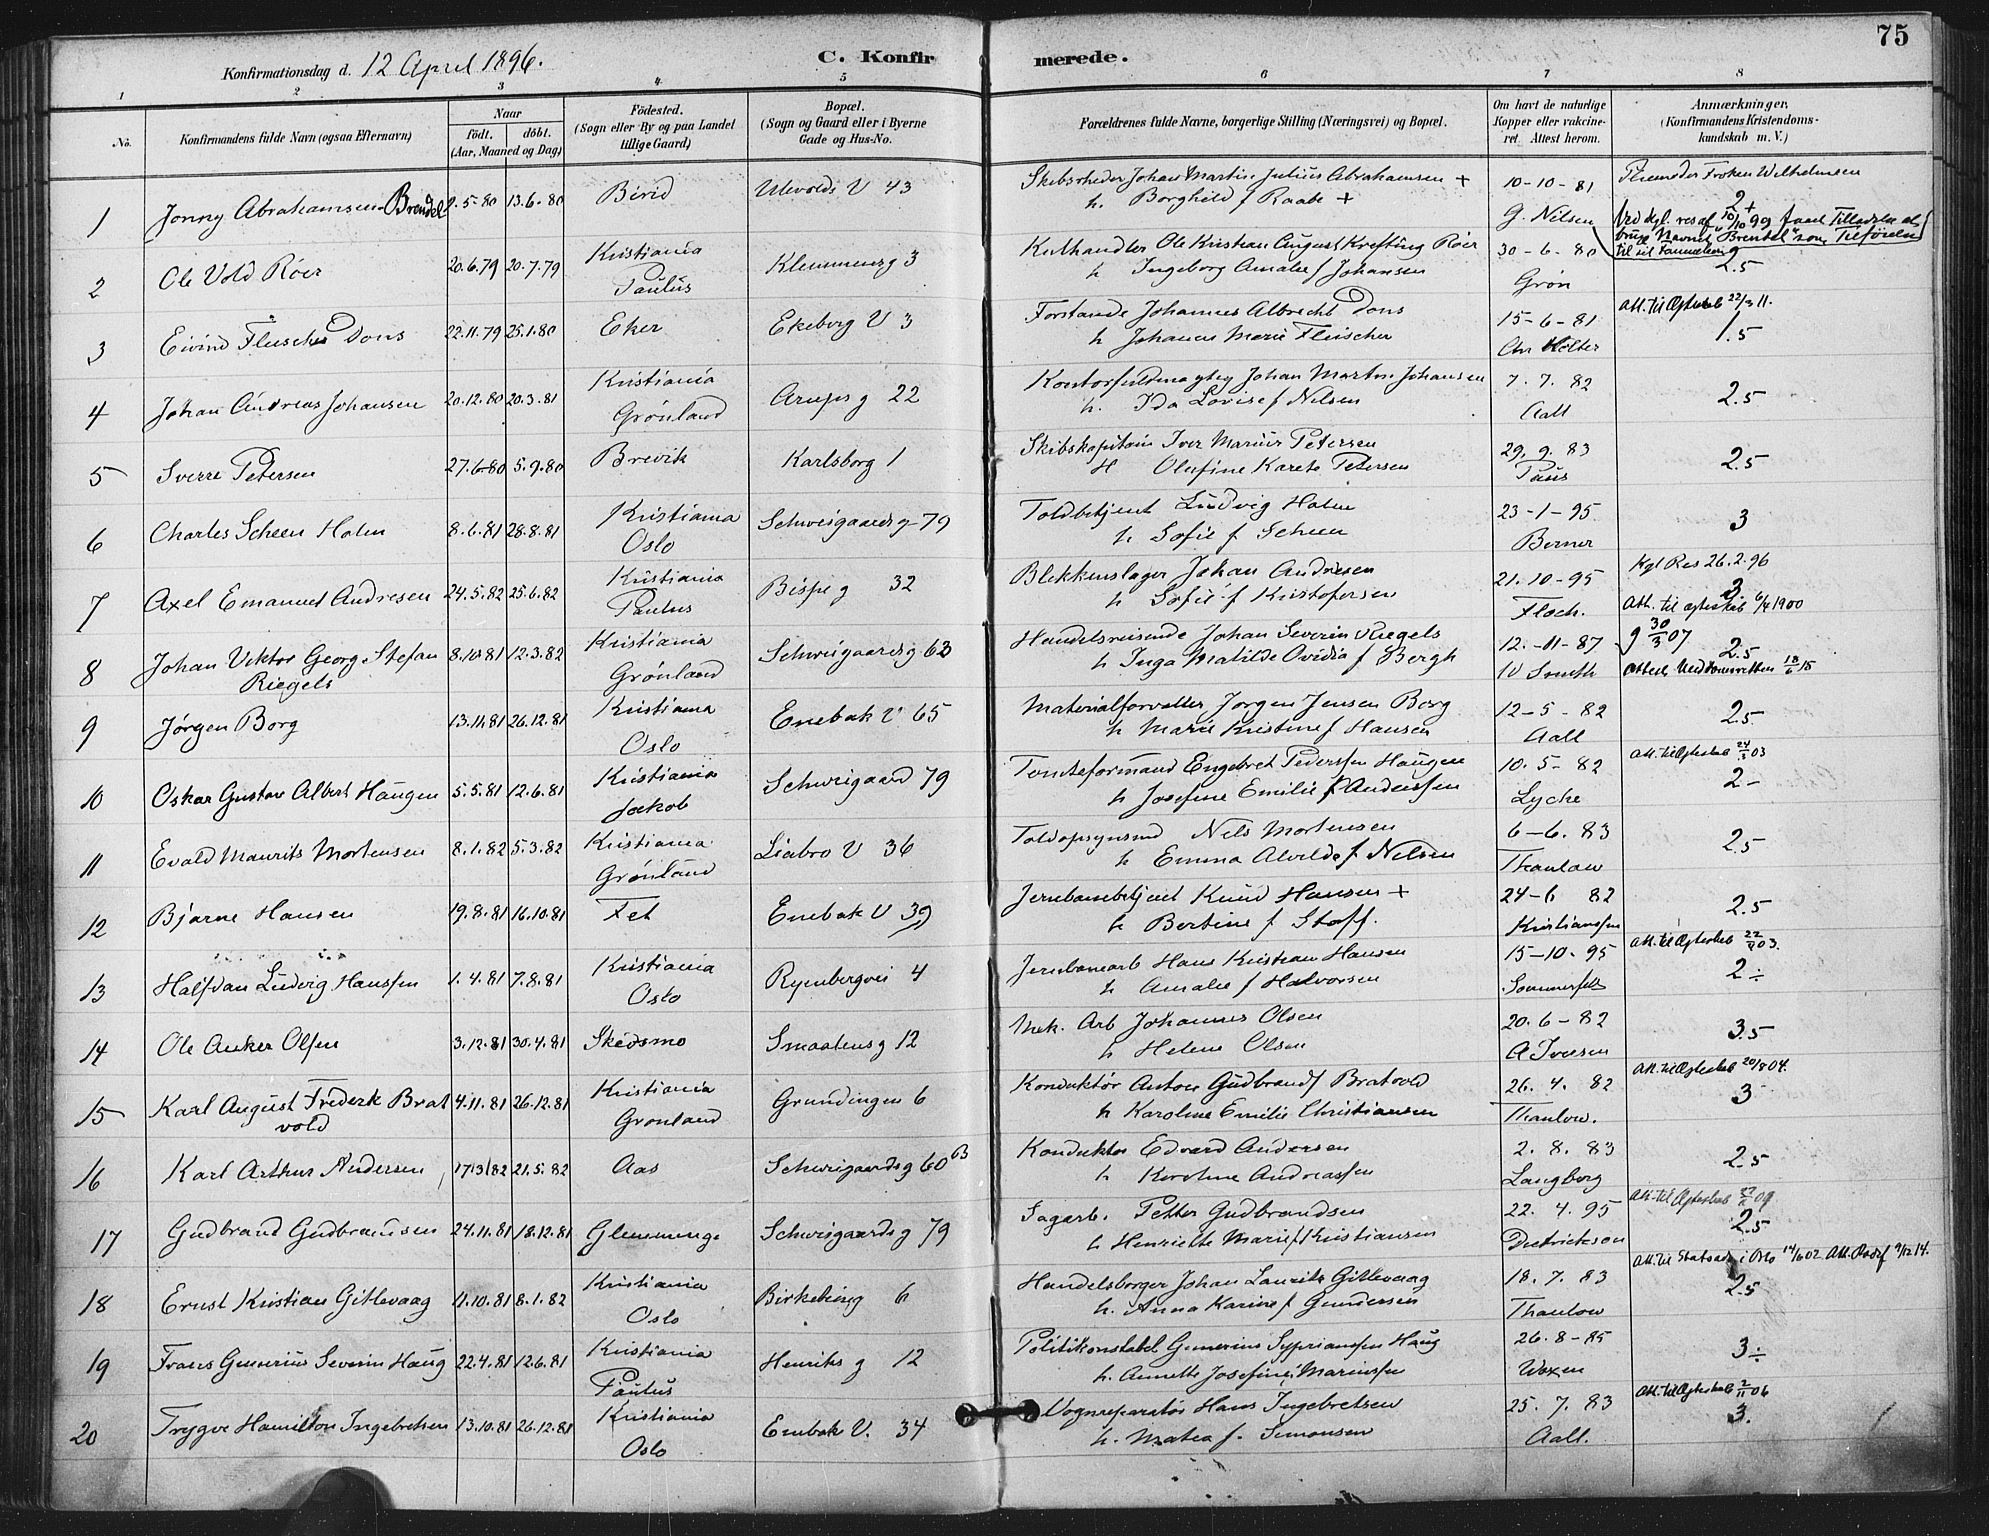 75
Konfirmationsdag d. 12 April 1896.
C. Konfirmerede.
1 2 3 4 5 6 7 8
No.
Konfirmandens fulde Navn (ogsaa Efternavn)
Naar
födt. döbt.
(Aar, Maaned og Dag)
Födested.
(Sogn eller By og paa Landet
tillige Gaard)
Bopæl.
(Sogn og Gaard eller i Byerne
Gade og Hus-No.
Forældrenes fulde Navne, borgerlige Stilling (Næringsvei) og Bopæl.
Om havt de naturlige
Kopper eller vakcine-
ret. Attest herom.
Anmærkninger.
(Konfirmandens Kristendoms-
kundskab m. V.)
1 Jonny Abrahamsen Brendel 2.5.80 13.6.80 Birid Ulvolds V 43 Skibsrheder Johan Martin Julius Abrahamsen +
h. Borghild f Raabe + 10-10-81
G. Nilsen Frøken Wilhelmsen
2+
Ved kgl. res af 10/10 99 faaet Tilladelse at
bruge Navnet "Brendel" som Tilføielse
til sit Familienavn
2 Ole Vold Röer 20.6.79 20.7.79 Kristiania
Paulus Klemmensg 3 Kulhandler Ole Kristian August Krefting Röer
h Ingeborg Amalie f Johansen 30-6-80
Grön 2.5
3 Eivind Fleischer Dons 22.11.79 25.1.80 Eker Ekeberg V 3 Forstander Johannes Albrecht Dons
h Johanne Marie Fleischer 15-6-81
Chr Holter Att. til Ægteskab 22/3 11.
1.5
4 Johan Andreas Johansen 20.12.80 20.3.81 Kristiania
Grönland Arups g 22 Kontorfuldmægtig Johan Martin Johansen
h. Ida Lovise f Nilsen 7. 7. 82
Aall 2.5
5 Sverre Petersen 27.6.80 5.9.80 Brevik Karlsborg 1 Skibskaptein Iver Marius Petersen
H Olufine Karete Petersen 29. 9. 83
Paus 2.5
6 Charles Scheen Holm 8.6.81 28.8.81 Kristiania
Oslo Schweigaardsg 79 Toldbetjent Ludvig Holm
h. Sofie f Scheen 23-1-95
Berner 3
7 Axel Emanuel Andresen 24.5.82 25.6.82 Kristiania
Paulus Bispeg 32 Blikkenslager Johan Andresen
h Sofie f Kristofersen 21.10-95
Floch. Kgl Res 26.2.96
3
Att. til ægteskab 6/4 1900
8 Johan Viktor Georg Stefan
Riegels 8.10.81 12.3.82 Kristiania
Grönland Schweigaardsg 63 Handelsreisende Johan Severin Riegels
h Inga Matilde Ovidia f Bergh 12.-11-87
W Smith 30/3 07
2.5
18/6 15
9 Jørgen Borg 13.11.81 26.12.81 Kristiania
Oslo Enebak V 65 Materialforvalter Jørgen Jensen Borg
h Marie Kristine f Hansen 12-5-82
Aall 2.5
10 Oskar Gustav Albert Haugen 5.5.81 12.6.81 Kristiania
Jakob Schweigaard 79 Tomteformand Engebret Pederssen Haugen
h Josefine Emilie f Anderssen 10. 5-82
Lyche Att. til Ægteskab 24/3 03
2-
11 Evald Maurits Mortensen 8.1.82 5.3.82 Kristiania
Grönland Liabro V 36 Toldopsynsmd Nels Mortensen
h Emma Alvilde f Nilsen 6-6. 83
Thaulow 2.5
12 Bjarne Hansen 19.8.81 16.10.81 Fet Enebak V 39 Jernbanebetjent Knud Hansen +
h Bertine f Stoff. 24-6 82
Kristianssen 2.5
13 Halfdan Ludvig Hanssen 1.4.81 7.8.81 Kristiania
Oslo Ryenbergvei 4 Jernbanearb Hans Kristian Hansen
h Amalie f Halvorsen 15-10.95
Sommerfelt Att. til Ægteskab 22/8 03.
2÷
14 Ole Anker Olsen 3.12.81 30.4.81 Skedsmo Smaalensg 12 Mek. Arb Johannes Olsen
h Helene Olsen 20.6-82
A Iversen 3.5
15 Karl August Frederk Brat
vold 4.11.81 26.12.81 Kristiania
Grønland Grundingen 6 Konduktör Anton Gudbrands Bratvold
h Karoline Emilie Christiansen 26. 4. 82
Thaulow. Att. til Ægteskab 20/8 04.
3
16 Karl Arthur Andersen 17.3.82 21.5.82 Aas Schweigaardsg 60 B Konduktör Edvard Andersen
h Karoline Andreassen 2. 8. 83
Langberg 2.5
17 Gudbrand Gudbrandsen 24.11.81 18.12.81 Glemminge Schweigaardsg 79 Sagarb. Petter Gudbrandsen
h Henriette Marie f Kristiansen 22. 4. 95
Dietrickson Att. til Ægteskab 09
2.5
18 Ernst Kristian Gitlevaag 11.10.81 8.1.82 Kristiania
Oslo Birkebeing 6 Handelsborger Johan Laurits Gitlevaag
h. Anna Karine f Gundersen 18. 7. 83
Thaulow Att. til Statsraad i Oslo 14/6 02 Att. 9/12 14.
2.5
19 Frans Gunerius Severin Haug 22.4.81 12.6.81 Kristiania
Paulus Henriks g 12 Politikonstabel Gunerius Syprianssen Haug
h. Annette Josefine Mariussen 26. 8-85
Woxen 3÷
20 Trygve Hamilton Ingebretsen 13.10.81 26.12.81 Kristiania
Oslo Enebak V. 34 Vognreparatör Hans Ingebretsen
h. Matea f. Simonsen 25. 7. 83
Aall. Att. til Ægteskab 2/11 06
3.